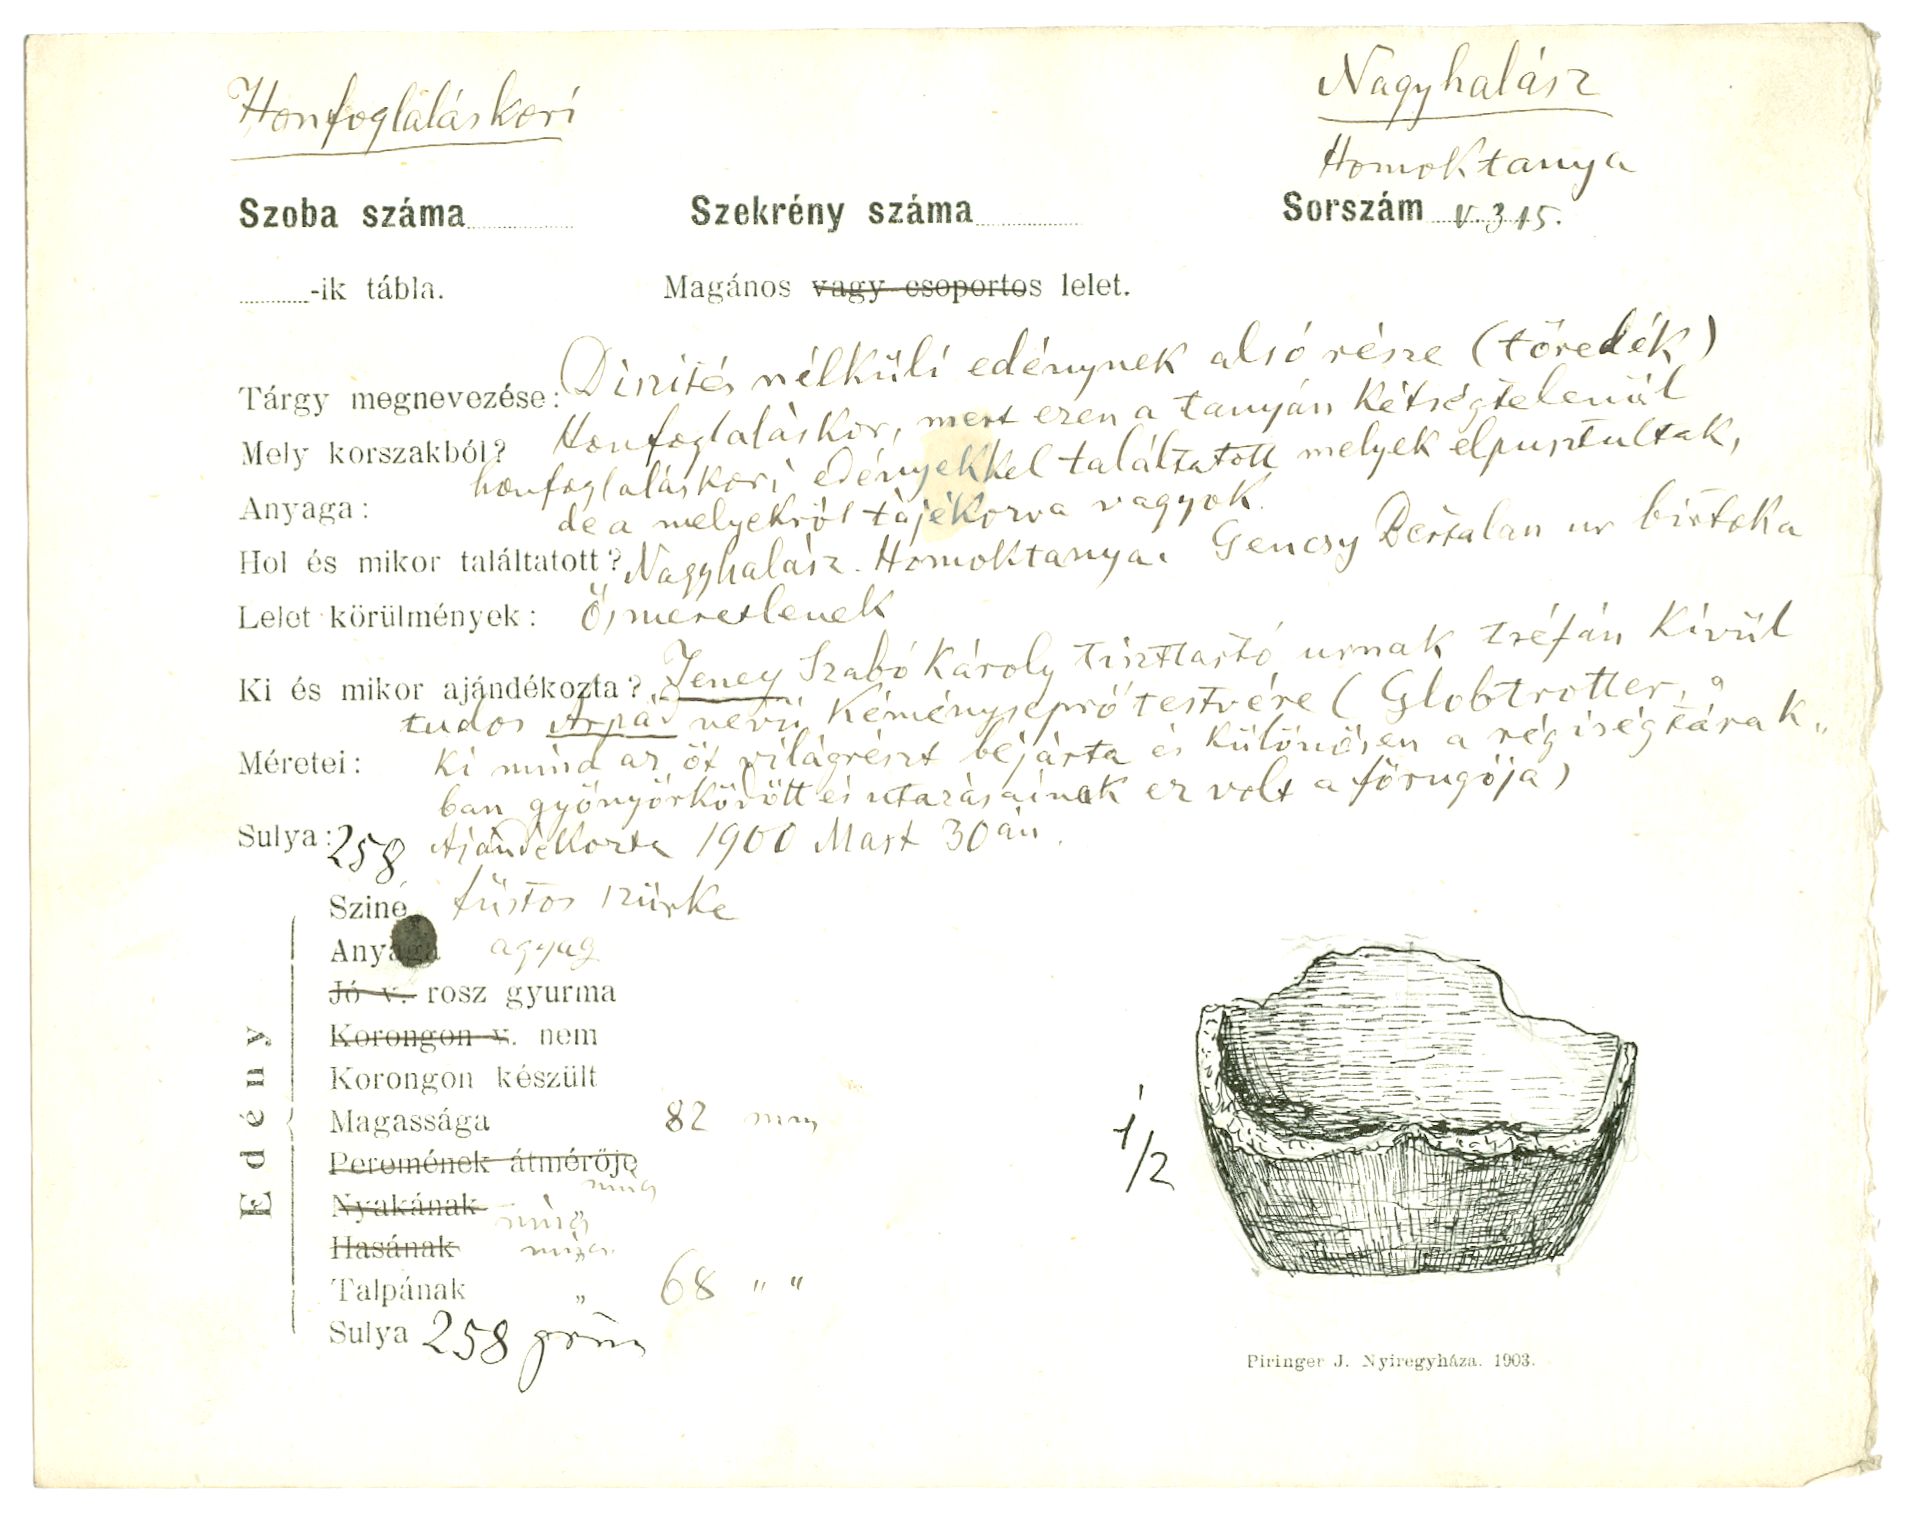 Honfoglaláskori
Nagyhalász
Homoktanya
Szoba száma Szekrény száma Sorszám V. 315.
-ik tábla. Magános vagy csoportos lelet.
Tárgy megnevezése: Diszités nélküli edénynek alsó része (töredék)
Mely korszakból? Honfoglaláskor, mert ezen a tanyán kétségtelenül
honfoglaláskori edényekkel találtatott melyek elpusztultak,
Anyaga: de a melyekről tájékozva vagyok.
Hol és mikor találtatott? Nagyhalász. Homoktanya. Gencsy Bertalan ur birtoka
Lelet körülmények: Ősmeretlenek
Ki és mikor ajándékozta? Jeney Szabó Károly tiszttartó urnak tréfán kívül
tudos Árpád nevü kéményseprő testvére (Globtrotter,
Méretei: ki mind az öt világrészt bejárta és különösen a régiségtárak„
ban gyönyörködött és utazásainak ez volt a főrugója)
Sulya: 258 Ajándékozta 1900 Mart 30án.
Edény
Szine füstos szürke
Anyaga agyag
Jó v. rosz gyurma
Korongon v. nem
Korongon készült
Magassága 82 mm
Peremének átmérője nincs
Nyakának „ nincs
Hasának „ nincs
Talpának „ 68 " "
Sulya 258 grm
1/2
Piringer J. Nyiregyháza. 1903.